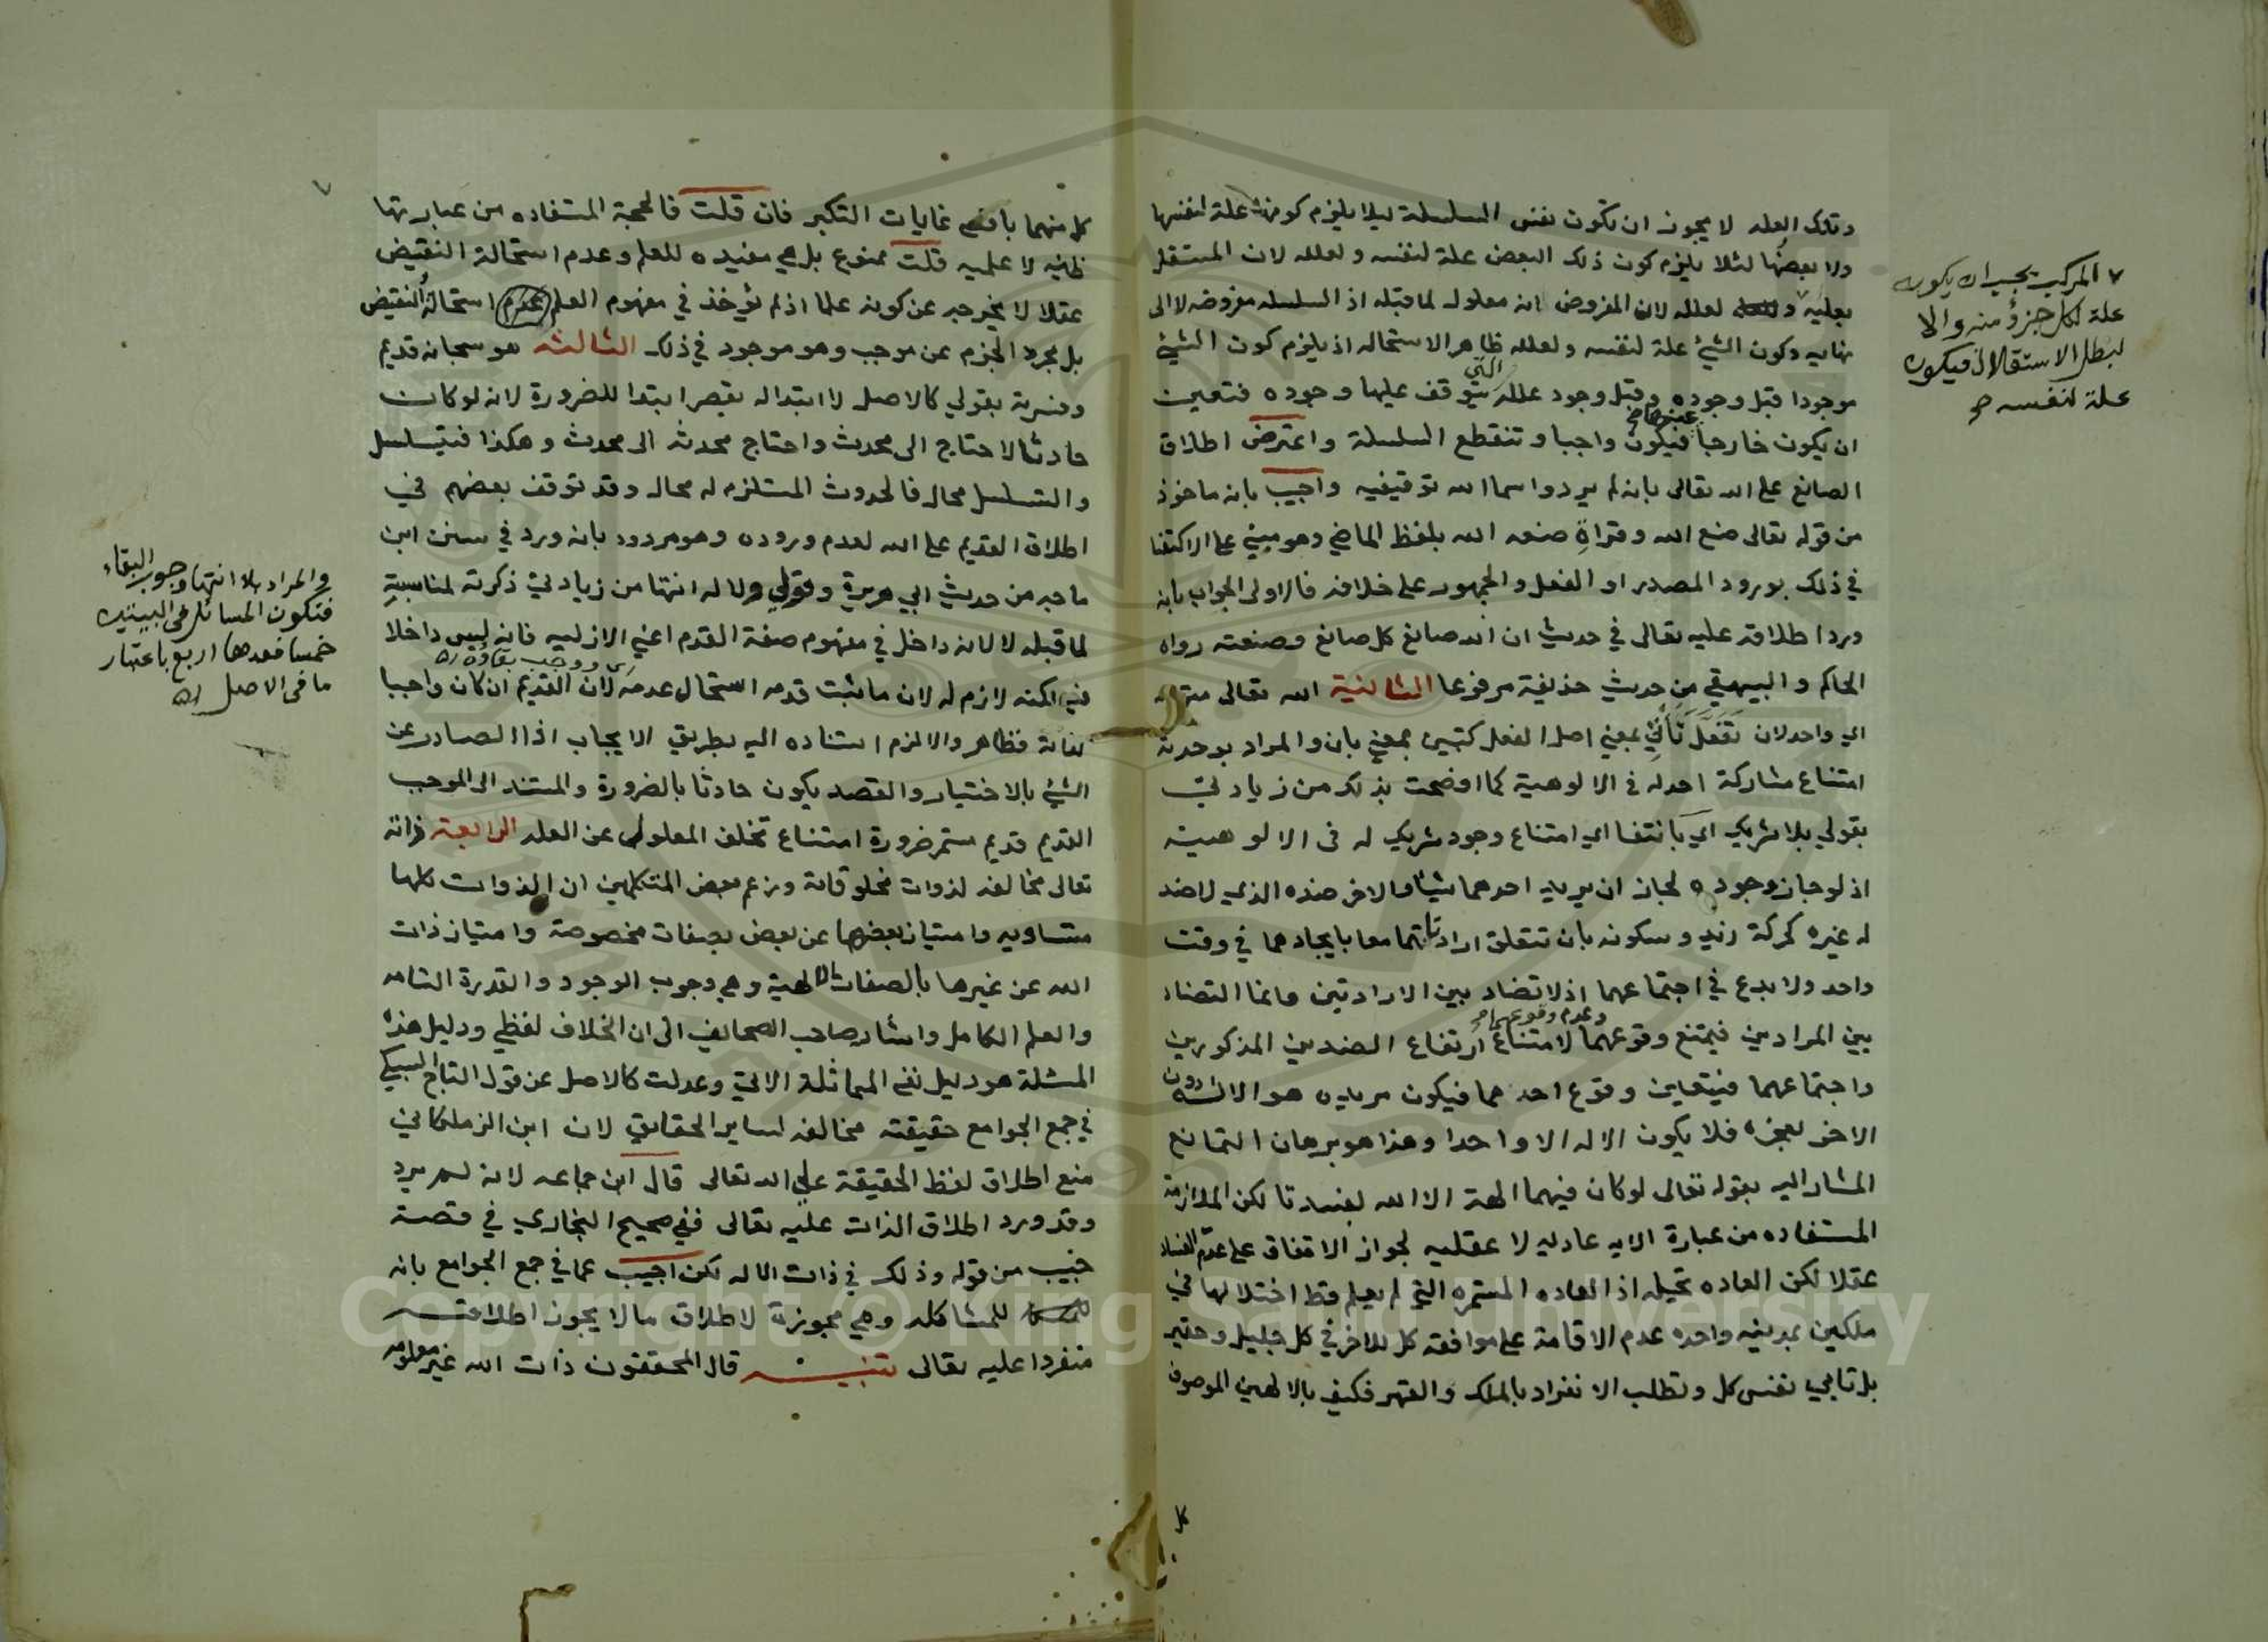 وتلك العله لا يجوز ان تكون نفس السلسلة ليلا يلزم كونها علة لنفسها
ولا بعضها لئلا يلزم كون ذلك البعض علة لنفسه ولعلله لان المستقل
بعليه لعلله لان المفروض انه معلول لما قبله اذ السلسله مفروضه لا الى
نهايه وكون الشيئ علة لنفسه ولعلله ظاهر الاستحاله اذ يلزم كون الشيئ
موجودا قبل وجوده وقبل وجود علله التي يتوقف عليها وجوده فتعين
ان يكون خارجا عنها فيكون واجبا وتنقطع السلسلة واعترض اطلاق
الصانع على الله تعالى بانه لم يرد واسما الله توقيفيه واجيب بانه ماخوذ
من قوله تعالى صنع الله وقراة صنعه الله بلفظ الماضي وهو مبني على الاكتفا
في ذلك بورود المصدر او الفعل والجمهور على خلافه فالاولى الجواب بانه
ورد اطلاقه عليه تعالى في حديث ان الله صانع كل صانع وصنعته رواه
الحاكم والبيهقي من حديث حذيفة مرفوعا الثانية الله تعالى
اي واحد لان تفعل تاتي بمعني اصل الفعل كتبين بمعني بان والمراد بوحدته
امتناع مشاركة احد له في الالوهية كما اوضحت بذلك من زيادتي
بقولي بلا شريك اي بانتفا اي امتناع وجود شريك له فى الالوهيته
اذ لو جاز وجوده لجاز ان يريد احدهما شيئا والاخر ضده الذي لا ضد
له غيره كحركة زيد وسكونه بان تتعلق ارادتاهما معا بايجادهما في وقت
واحد ولا بدع في اجتماعهما اذ لا تضاد بين الارادتين وانما التضاد
بين المرادين فيمتنع وقوعهما وعدم وقوعهما لامتناع ارتفاع الضدين المذكورين
واجتماعهما فيتعين وقوع احدهما فيكون مريده هو الاله دون
الاخر لعجزه فلا يكون الاله الا واحدا وهذا هو برهان التمانع
المشار اليه بقوله تعالى لو كان فيهما الهة الا الله لفسدتا لكن الملازمة
المستفاده من عبارة الايه عاديه لا عقليه لجواز الاتفاق على عدم الفساد
عقلا لكن العاده تحيله اذ العاده المستمره التي لم يعلم قط اختلالها في
ملكين بمدينه واحده عدم الاقامة على موافقه كل للاخر في كل جليل وحقير
بل تابي نفس كل وتطلب الانفراد بالملك والقهر فكيف بالالهين الموصوف
كل
٧ المركب يجب ان يكون
علة لكل جزؤ منه والا
لبطل الاستقلال فيكون
علة لنفسه صح
٧
كل منهما باقصى غايات التكبر فان قلت فالحجة المستفاده من عبارتها
ظنيه لا علميه قلت ممنوع بل هي مفيده للعلم وعدم استحالة النقيض
عقلا لا يخرجه عن كونه علما اذ لم يؤخذ في مفهوم العلم عدم استحالة النقيض
بل مجرد الجزم عن موجب وهو موجود في ذلك الثالثه هو سبحانه قديم
وفسرته بقولي كالاصل لا ابتدا له بقصر ابتدا للضرورة لانه لو كان
حادثا لاحتاج الى محدث واحتاج محدثه الى محدث وهكذا فيتسلسل
والتسلسل محال فالحدوث المستلزم له محال وقد توقف بعضهم في
اطلاق القديم على الله لعدم وروده وهو مردود بانه ورد في سنن ابن
ماجه من حديث ابي هريرة وقولي ولا له انتها من زيادتي ذكرته لمناسبة
لما قبله لا لانه داخل في مفهوم صفة القدم اعني الازليه فانه ليس داخلا
فيه لكنه لازم له لان ما ثبت قدمه استحال عدمه اي ووجب بقاؤه اه لان القديم ان كان واجبا
لذاته فظاهر والا لزم استناده اليه بطريق الايجاب اذ الصادر عن
الشيئ بالاختيار والقصد يكون حادثا بالضرورة والمستند الى الموجب
القديم قديم مستمر ضرورة امتناع تخلف المعلول عن العله الرابعة ذاته
تعالى مخالفه لذوات مخلوقاته وزعم بعض المتكلمين ان الذوات كلها
متساويه وامتياز بعضها عن بعض بصفات مخصوصة وامتياز ذات
الله عن غيرها بالصفات الالهية وهي وجوب الوجود والقدرة التامه
والعلم الكامل واشار صاحب الصحائف الى ان الخلاف لفظي ودليل هذه
المسئلة هو دليل نفي المماثلة الاتي وعدلت كالاصل عن قول التاج السبكي
في جمع الجوامع حقيقته مخالفه لساير الحقايق لان ابن الزملكاني
منع اطلاق لفظ الحقيقة على الله تعالى قال ابن جماعه لانه لم يرد
وقد ورد اطلاق الذات عليه تعالى ففي صحيح البخاري في قصة
خبيب من قوله وذلك في ذات الاله لكن اجيب عما في جمع الجوامع بانه
للمشاكله وهي مجوزة لاطلاق ما لا يجوز اطلاقه
منفردا عليه تعالى تنبيه قال المحققون ذات الله غير معلومه
والمراد بلا انتها وجوب البقاء
فتكون المسائل في البيتين
خمسا فعدها اربع باعتبار
ما في الاصل اه
Copyright © King Saud University